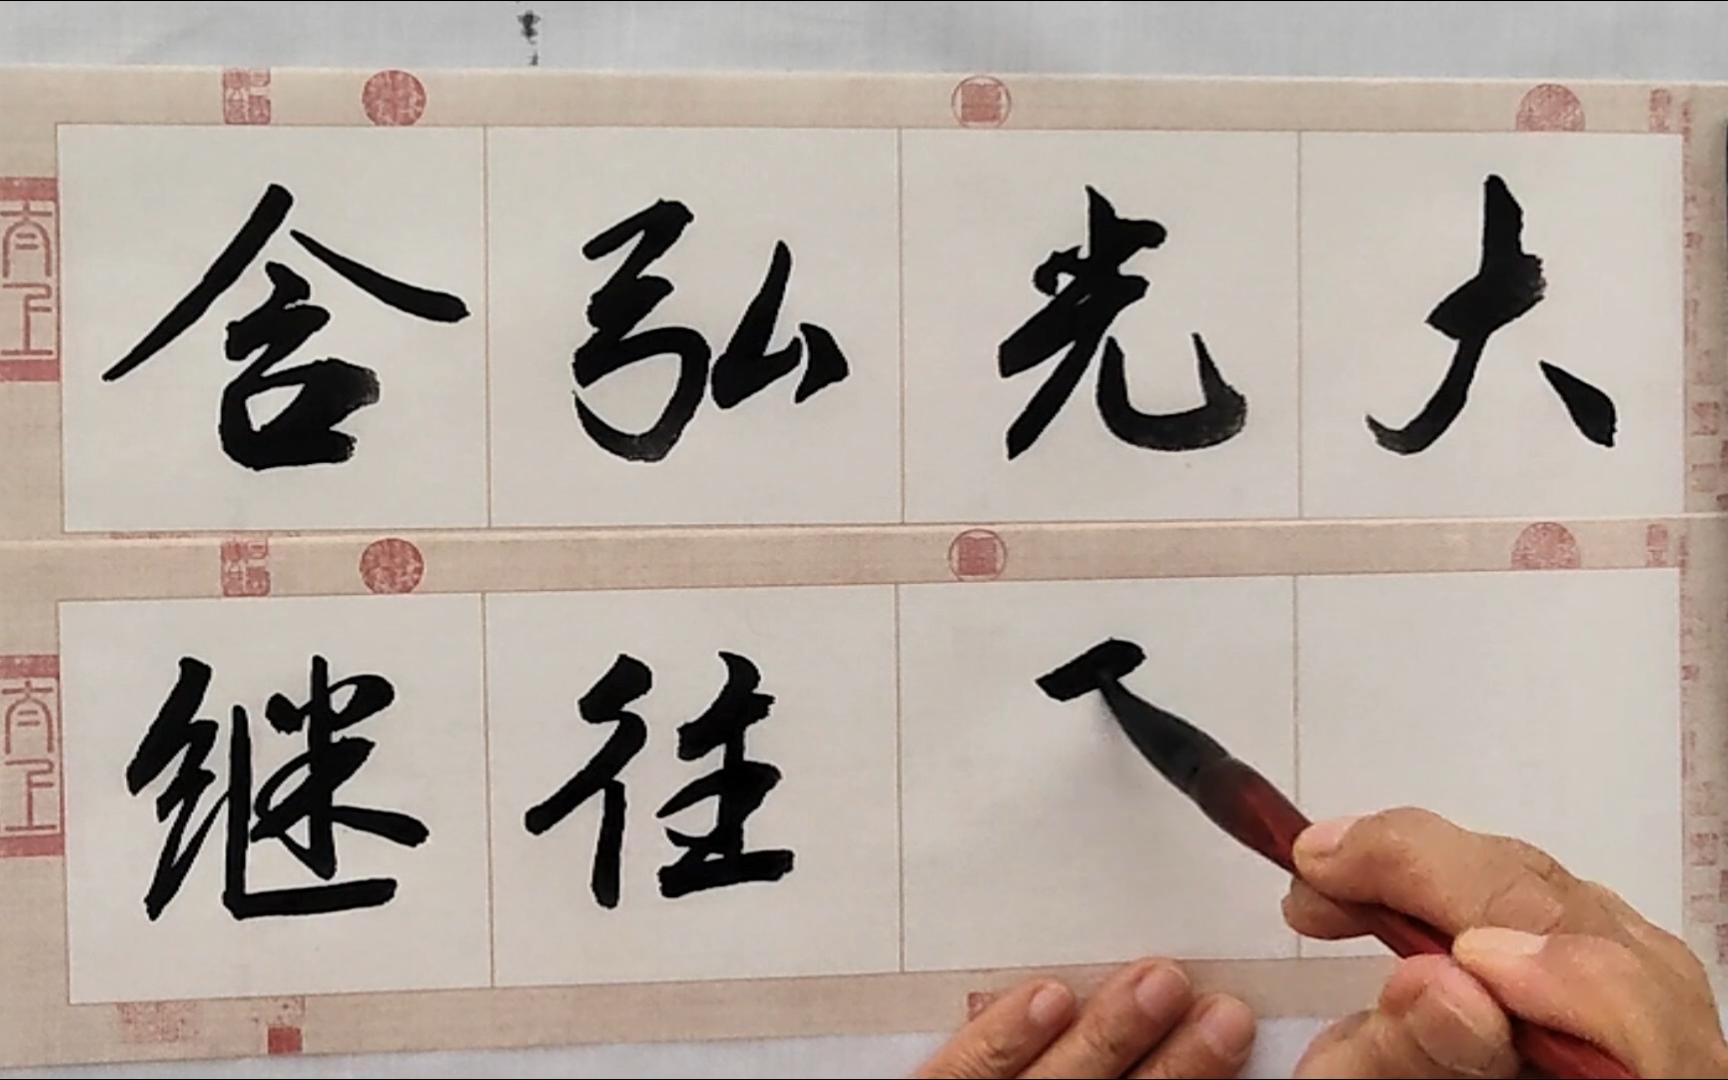 含弘光大
继往